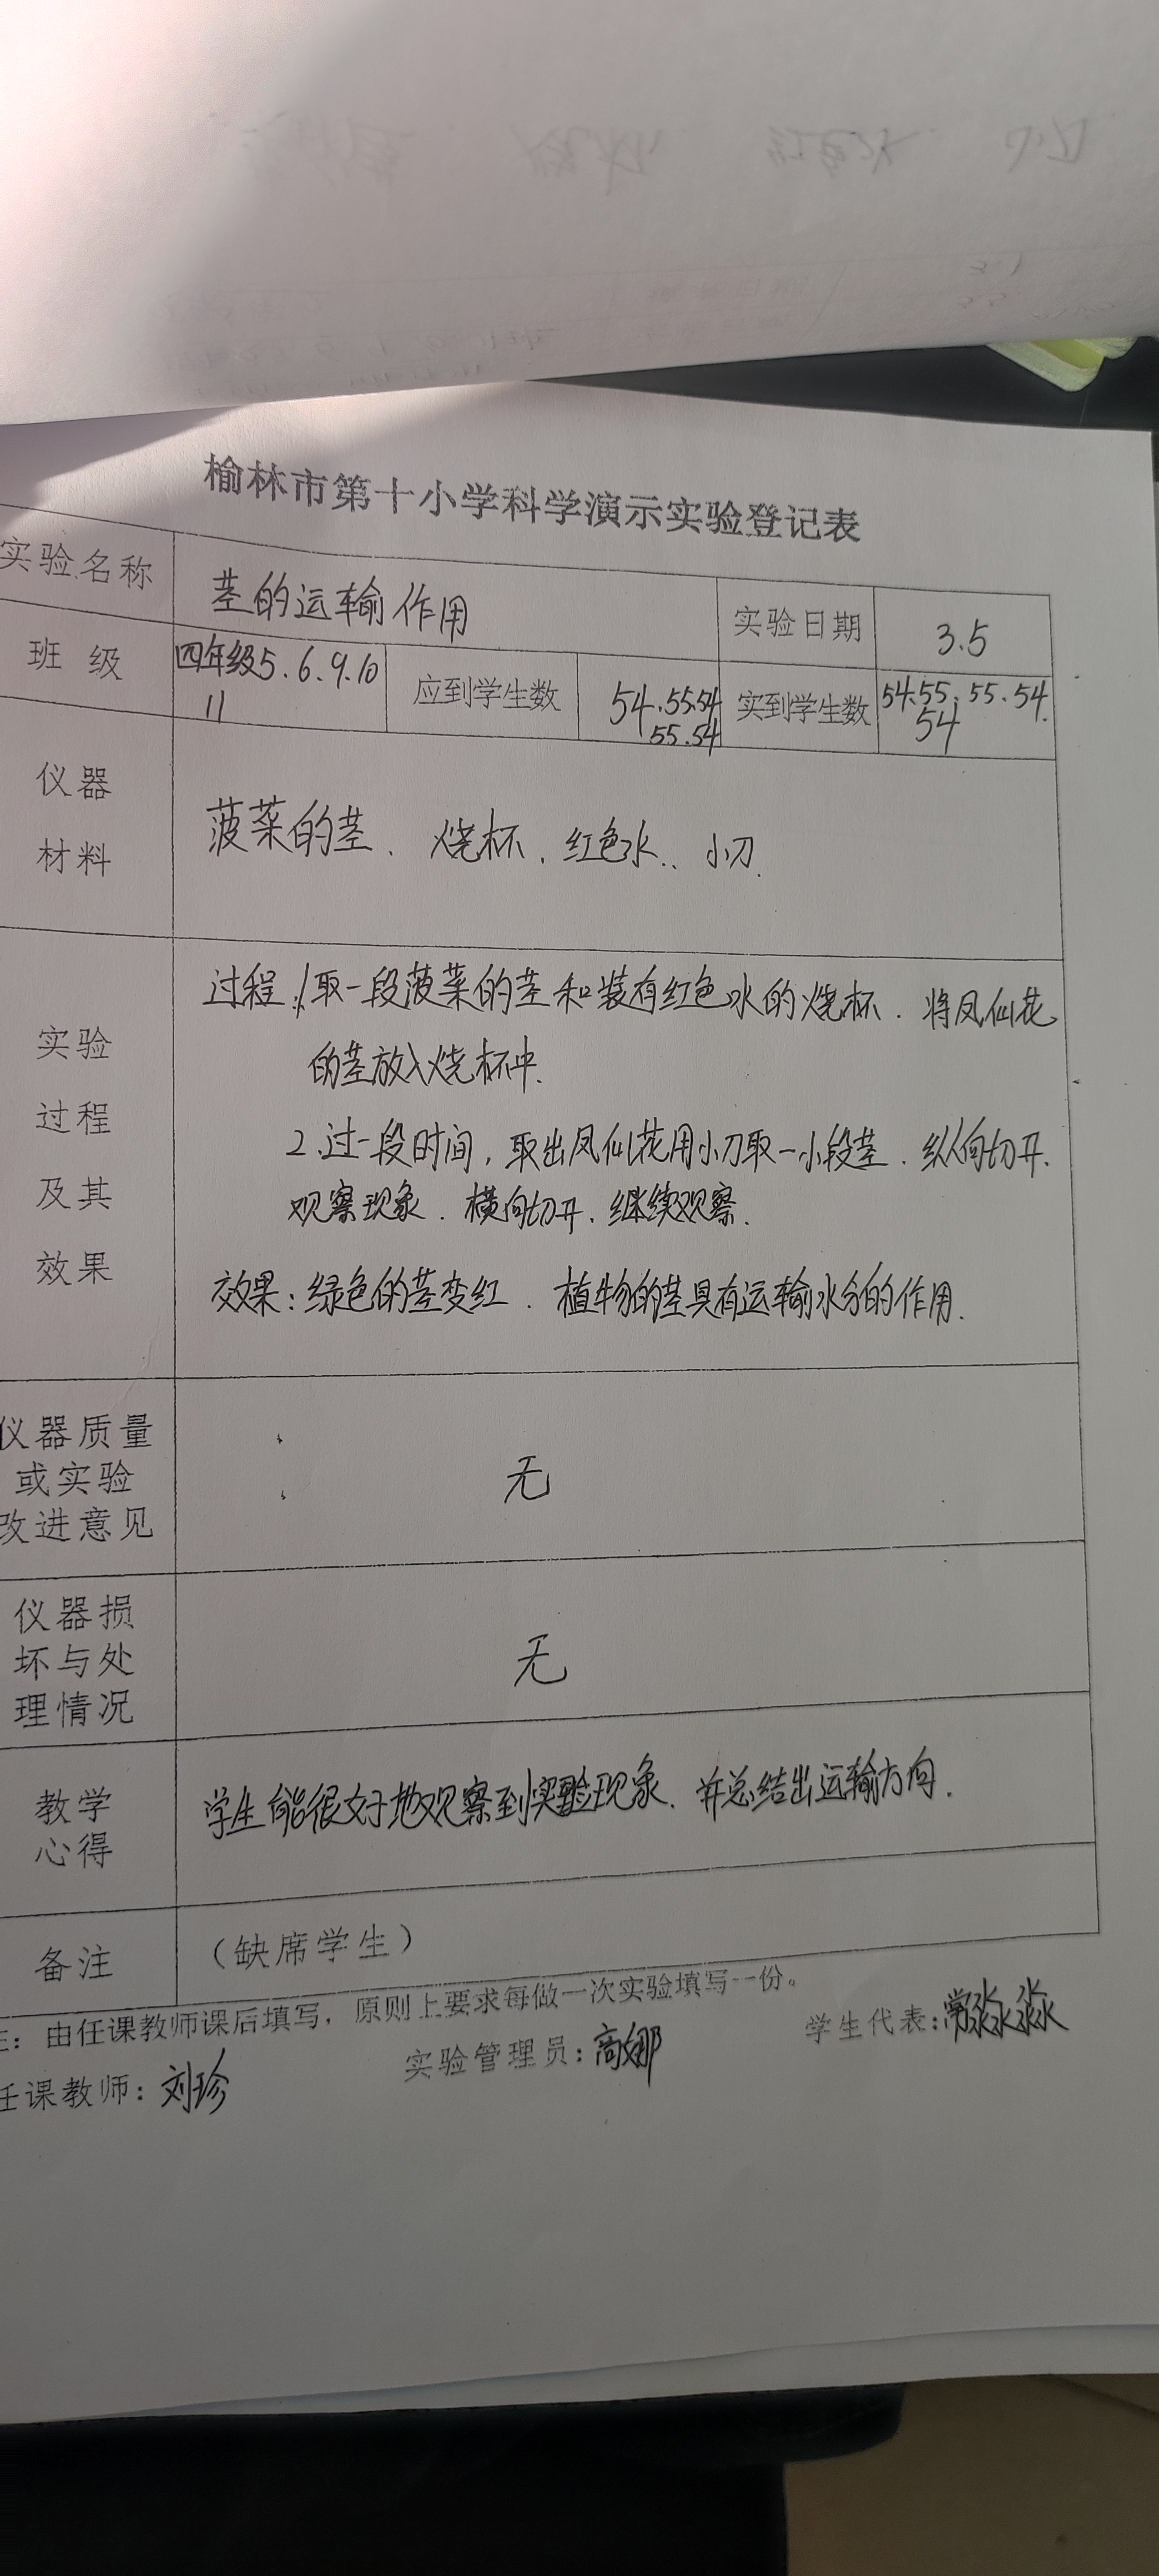 榆林市第十小学科学演示实验登记表
实验名称 茎的运输作用 实验日期 3.5
班 级 四年级5.6.9.10 应到学生数 54.55.54 实到学生数 54.55.55.54.
11 55.54 54
仪器
材料
菠菜的茎、烧杯、红色水、小刀.
实验
过程
及其
效果
过程:1取一段菠菜的茎和装有红色水的烧杯.将凤仙花
的茎放入烧杯中.
2.过一段时间,取出凤仙花用小刀取一小段茎.纵向切开.
观察现象.横向切开.继续观察.
效果:绿色的茎变红.植物的茎具有运输水分的作用.
仪器质量
或实验
改进意见
无
仪器损
坏与处
理情况
无
教学
心得
学生能很好地观察到实验现象.并总结出运输方向.
备注 (缺席学生)
注:由任课教师课后填写,原则上要求每做一次实验填写一份。
任课教师:刘珍 实验管理员:高娜 学生代表:常淼淼